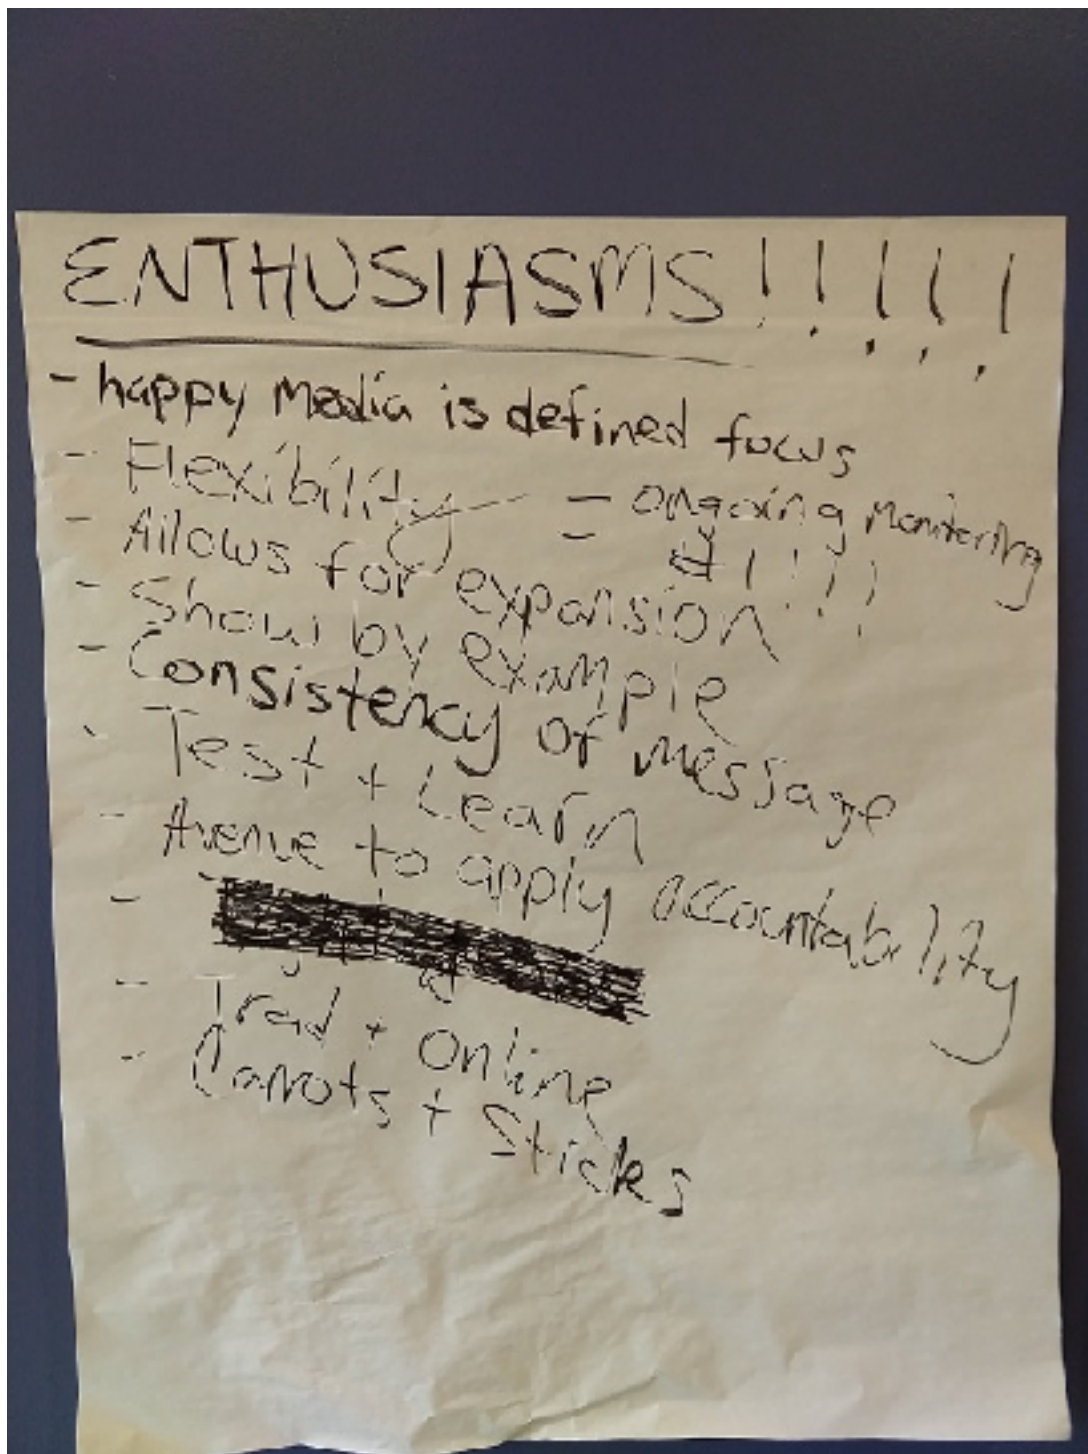 ENTHUSIASMS!!!!!
- happy media is defined focus
- Flexibility - ongoing monitering
- #1!!!
- Allows for expansion
- Show by example
- Consistency of message
- Test + Learn
- Avenue to apply accountability
-
- Trad + Online
- Carrots + Sticks